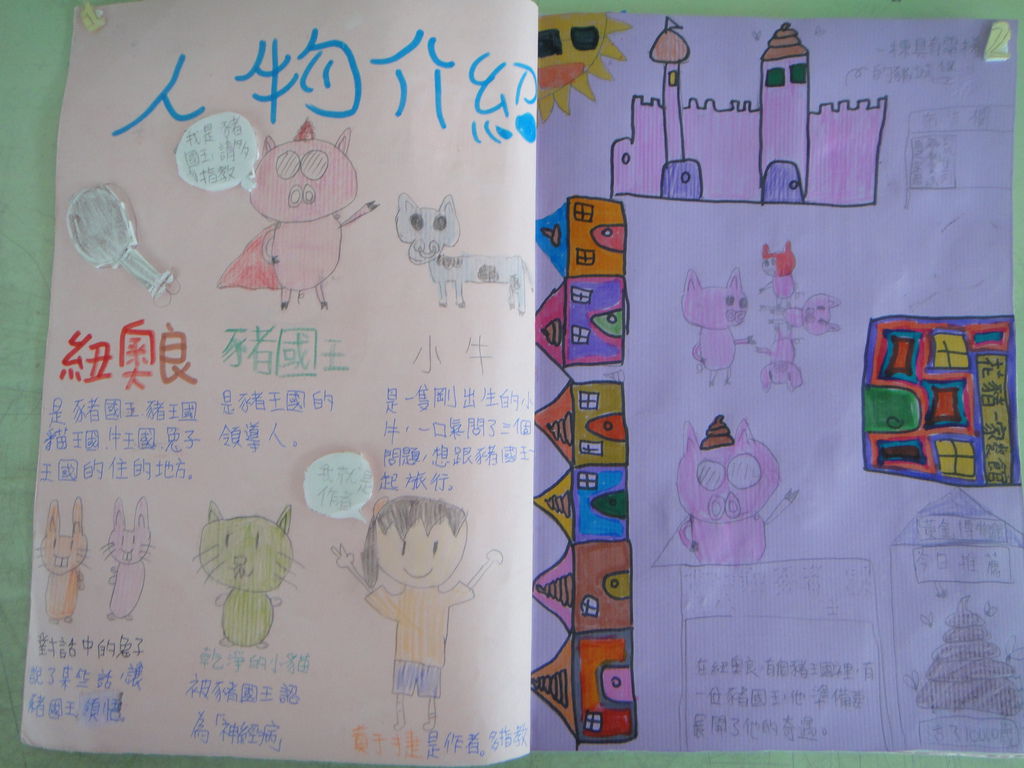 1
人物介紹
我是豬
國王,請多
指教
紐奧良
是豬國王.豬王國
貓王國.牛王國.兔子
王國的住的地方。
豬國王
是豬王國的
領導人。
小牛
是一隻剛出生的小
牛,一口氣問了三個
問題,想跟豬國王一
起旅行。
我就是
作者
對話中的兔子
說了某些話,讓
豬國王領悟
乾淨的小貓
被豬國王認
為「神經病」
是作者。多指教
2
一棟具有電梯
的豬城堡
花豬一家餐館
黃金博物館
今日推薦
在紐奧良,有個豬王國裡,有
一位豬國王,他準備要
展開了他的奇遇。